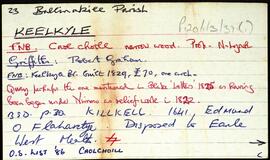 23 Ballynakill Parish
P201/3/37(1)
KEELKYLE
FNB: Caol Choill narrow wood. Prop.
Griffith: Robert Graham.
FNB: Keelkyle Br. built 1824, £70, one arch.
Query perhaps the one mentioned in Blake Letters 1825 as having
been begun under Nimmo as relief work in 1822
BSD. p. 70 KILLKELL. 1641, Edmund
O Flaharty Disposed to Earle
West Meath
O.S. LIST '86 CAOLCHOILL